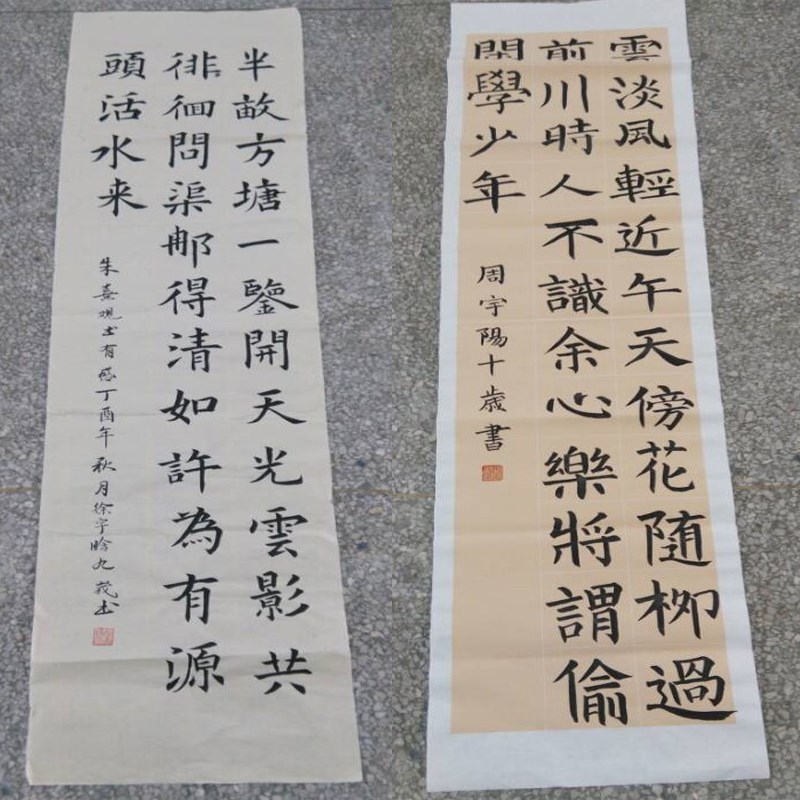 半畝方塘一鑒開天光雲影共
徘徊問渠那得清如許為有源
頭活水来
朱熹观书有感丁酉年秋月徐宇昤九歲书
雲淡風輕近午天傍花随柳過
前川時人不識余心樂將謂偷
閑學少年
周宇陽十歲書